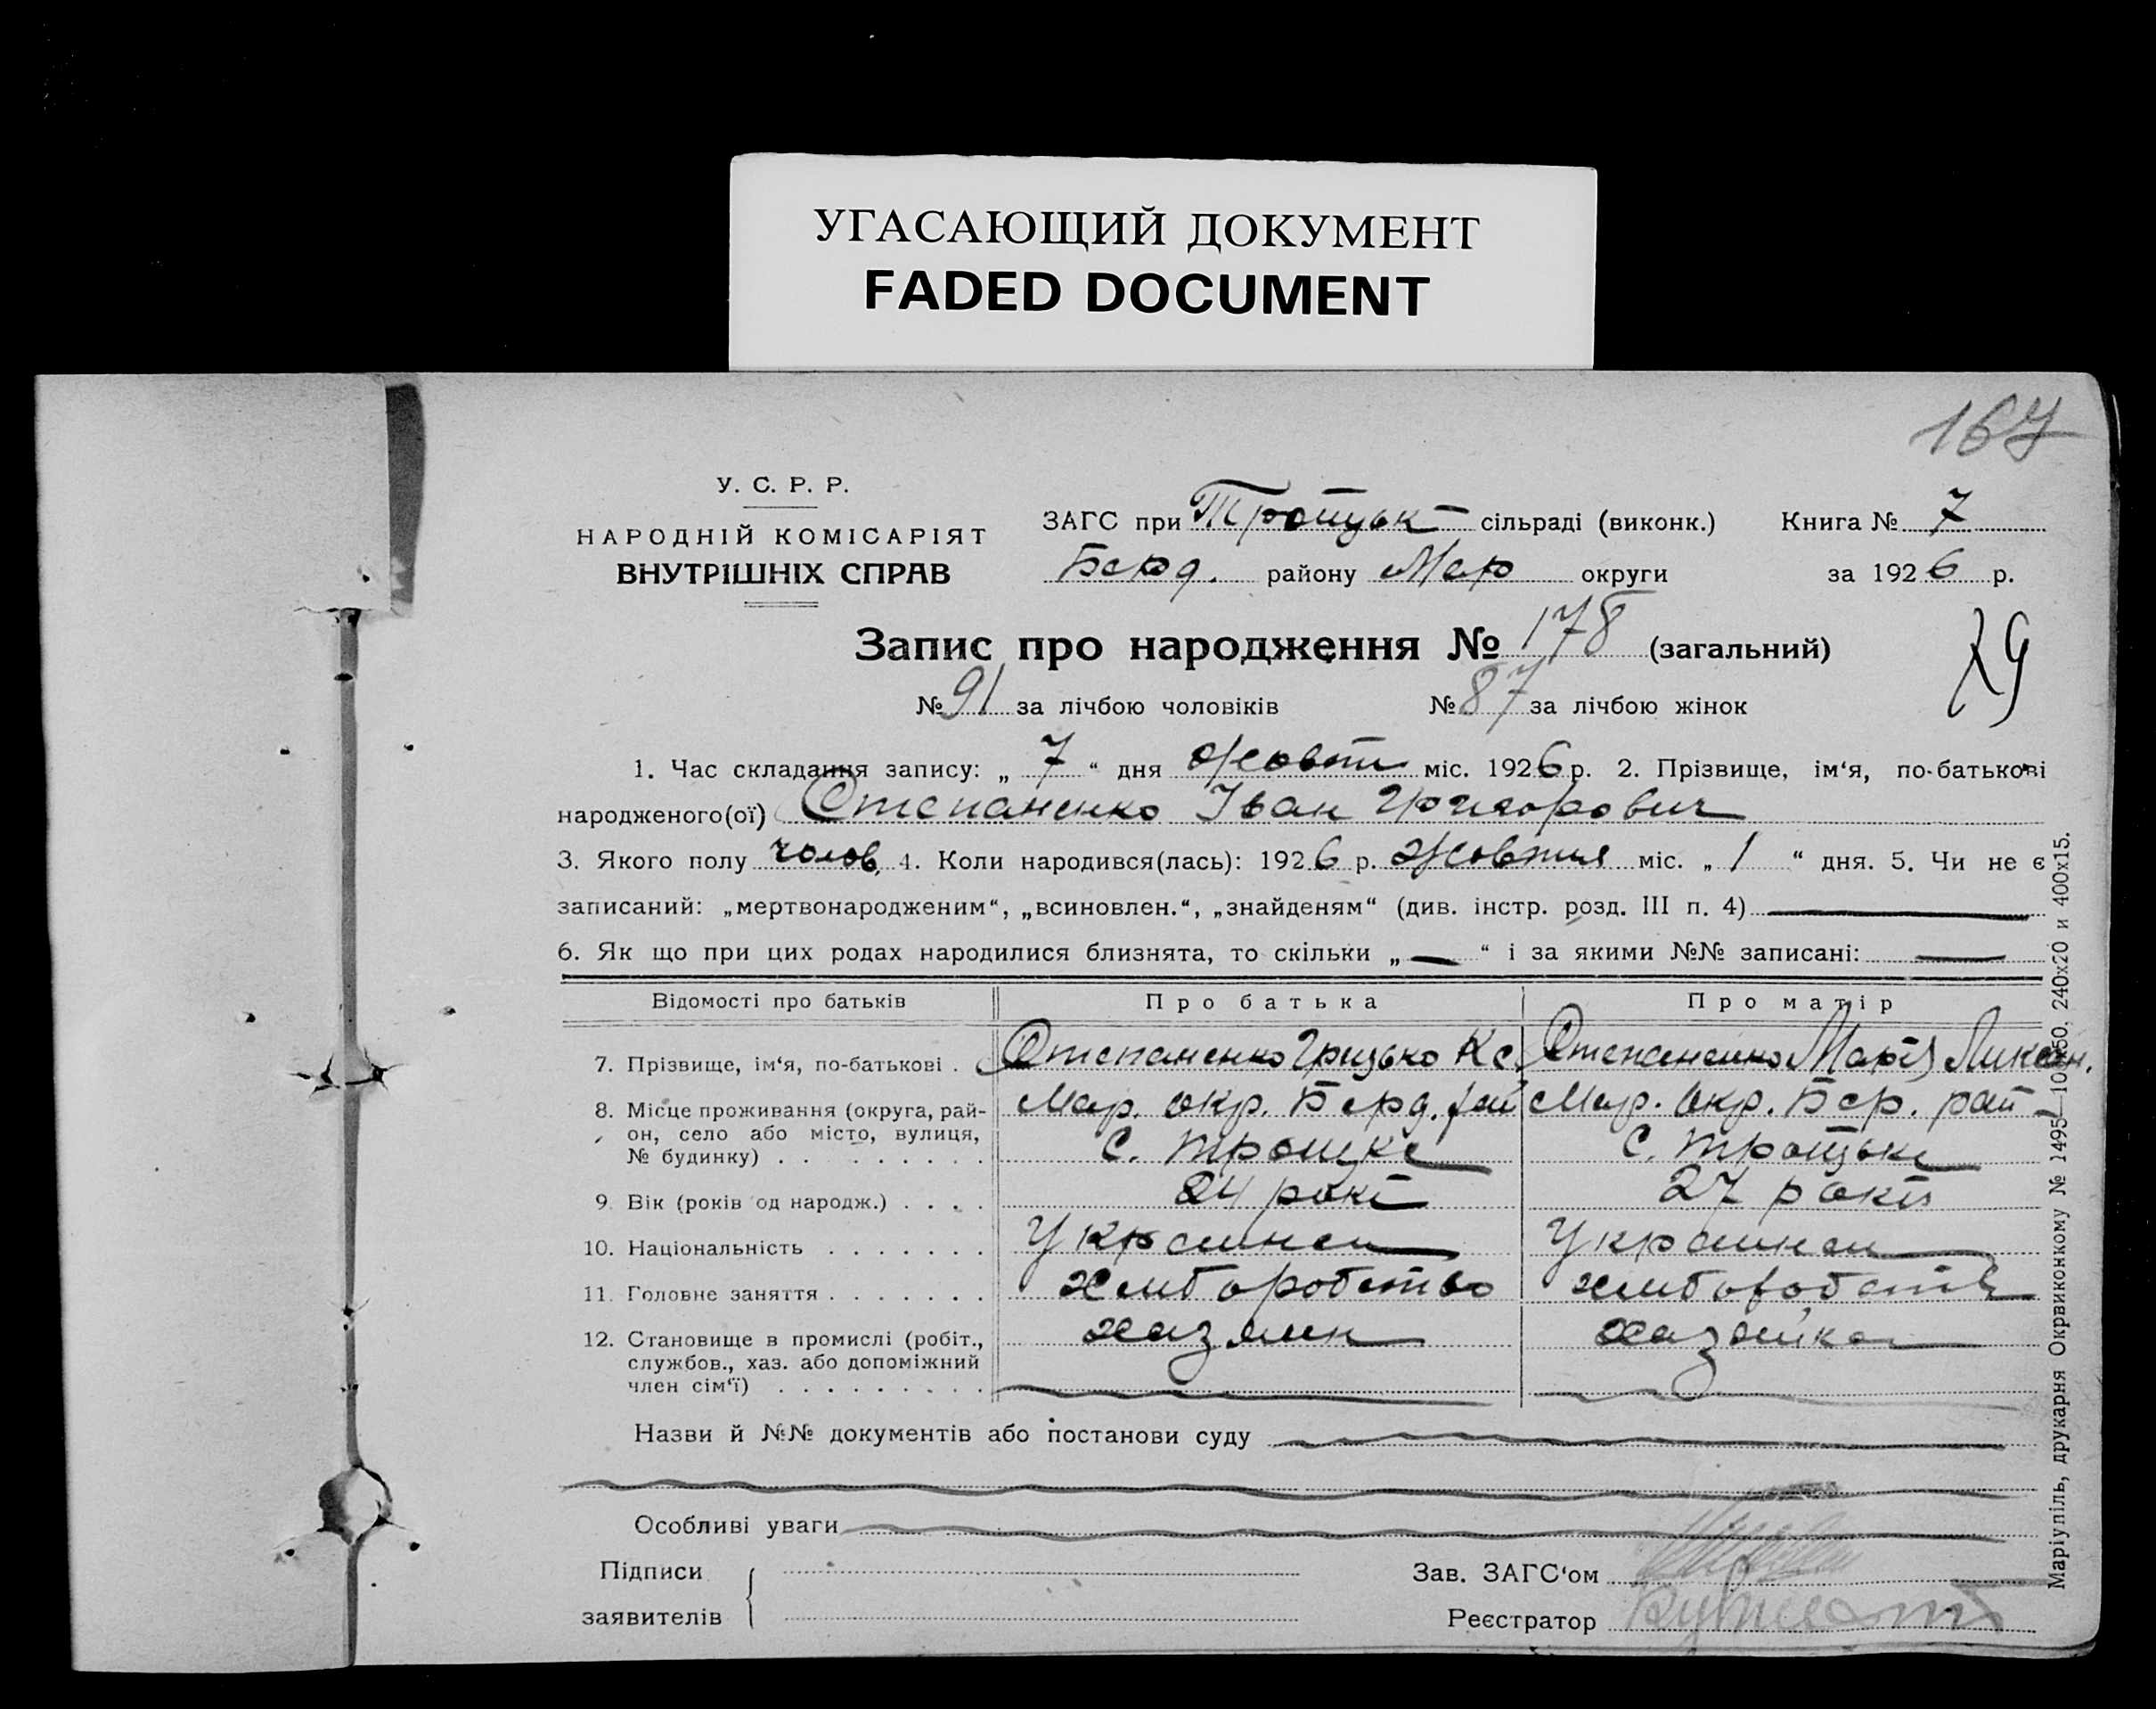 УГАСАЮЩИЙ ДОКУМЕНТ
FADED DOCUMENT
167
У. С. Р. Р.
НАРОДНІЙ КОМІСАРІЯТ
ВНУТРІШНІХ СПРАВ
ЗАГС при Троцьк сільраді (виконк.) Книга № 7
Берд. району Мар округи за 1926 р.
Запис про народження № 178 (загальний)
№ 91 за лічбою чоловіків № 87 за лічбою жінок
1. Час складання запису: „ 7 “ дня Жовтн міс. 1926 р. 2. Прізвище, ім‘я, по-батькові
народженого(ої) Степаненко Іван Григорович
3. Якого полу чолов. 4. Коли народився(лась): 1926 р. Жовтня міс. „ 1 “ дня. 5. Чи не є
записаний: „мертвонародженим“, „всиновлен.“, „знайденям“ (див. інстр. розд. III п. 4) —
6. Як що при цих родах народилися близнята, то скільки „ — “ і за якими №№ записані: —
Відомості про батьків Про батька Про матір
7. Прізвище, ім‘я, по-батькові . Степаненко Грицько Степаненко Марія
8. Місце проживання (округа, рай- Мар. окр. Берд. рай Мар. Окр. Бер. рай
он, село або місто, вулиця, С. Троцьке С. Троцьке
№ будинку) . . . . . . . . .
9. Вік (років од народж.) . . . . 24 рокі 27 років
10. Національність . . . . . . . Украинец Украинка
11. Головне заняття . . . . . . . хлиборобство хлиборобств
12. Становище в промислі (робіт., хазяин хазяйка
службов., хаз. або допоміжний
член сім‘ї) . . . . . . . . .
Назви й №№ документів або постанови суду
Особливі уваги
Підписи
заявителів
Зав. ЗАГС‘ом
Реєстратор
Маріупіль, друкарня Окрвиконкому № 1495—100х50. 240х20 и 400х15.